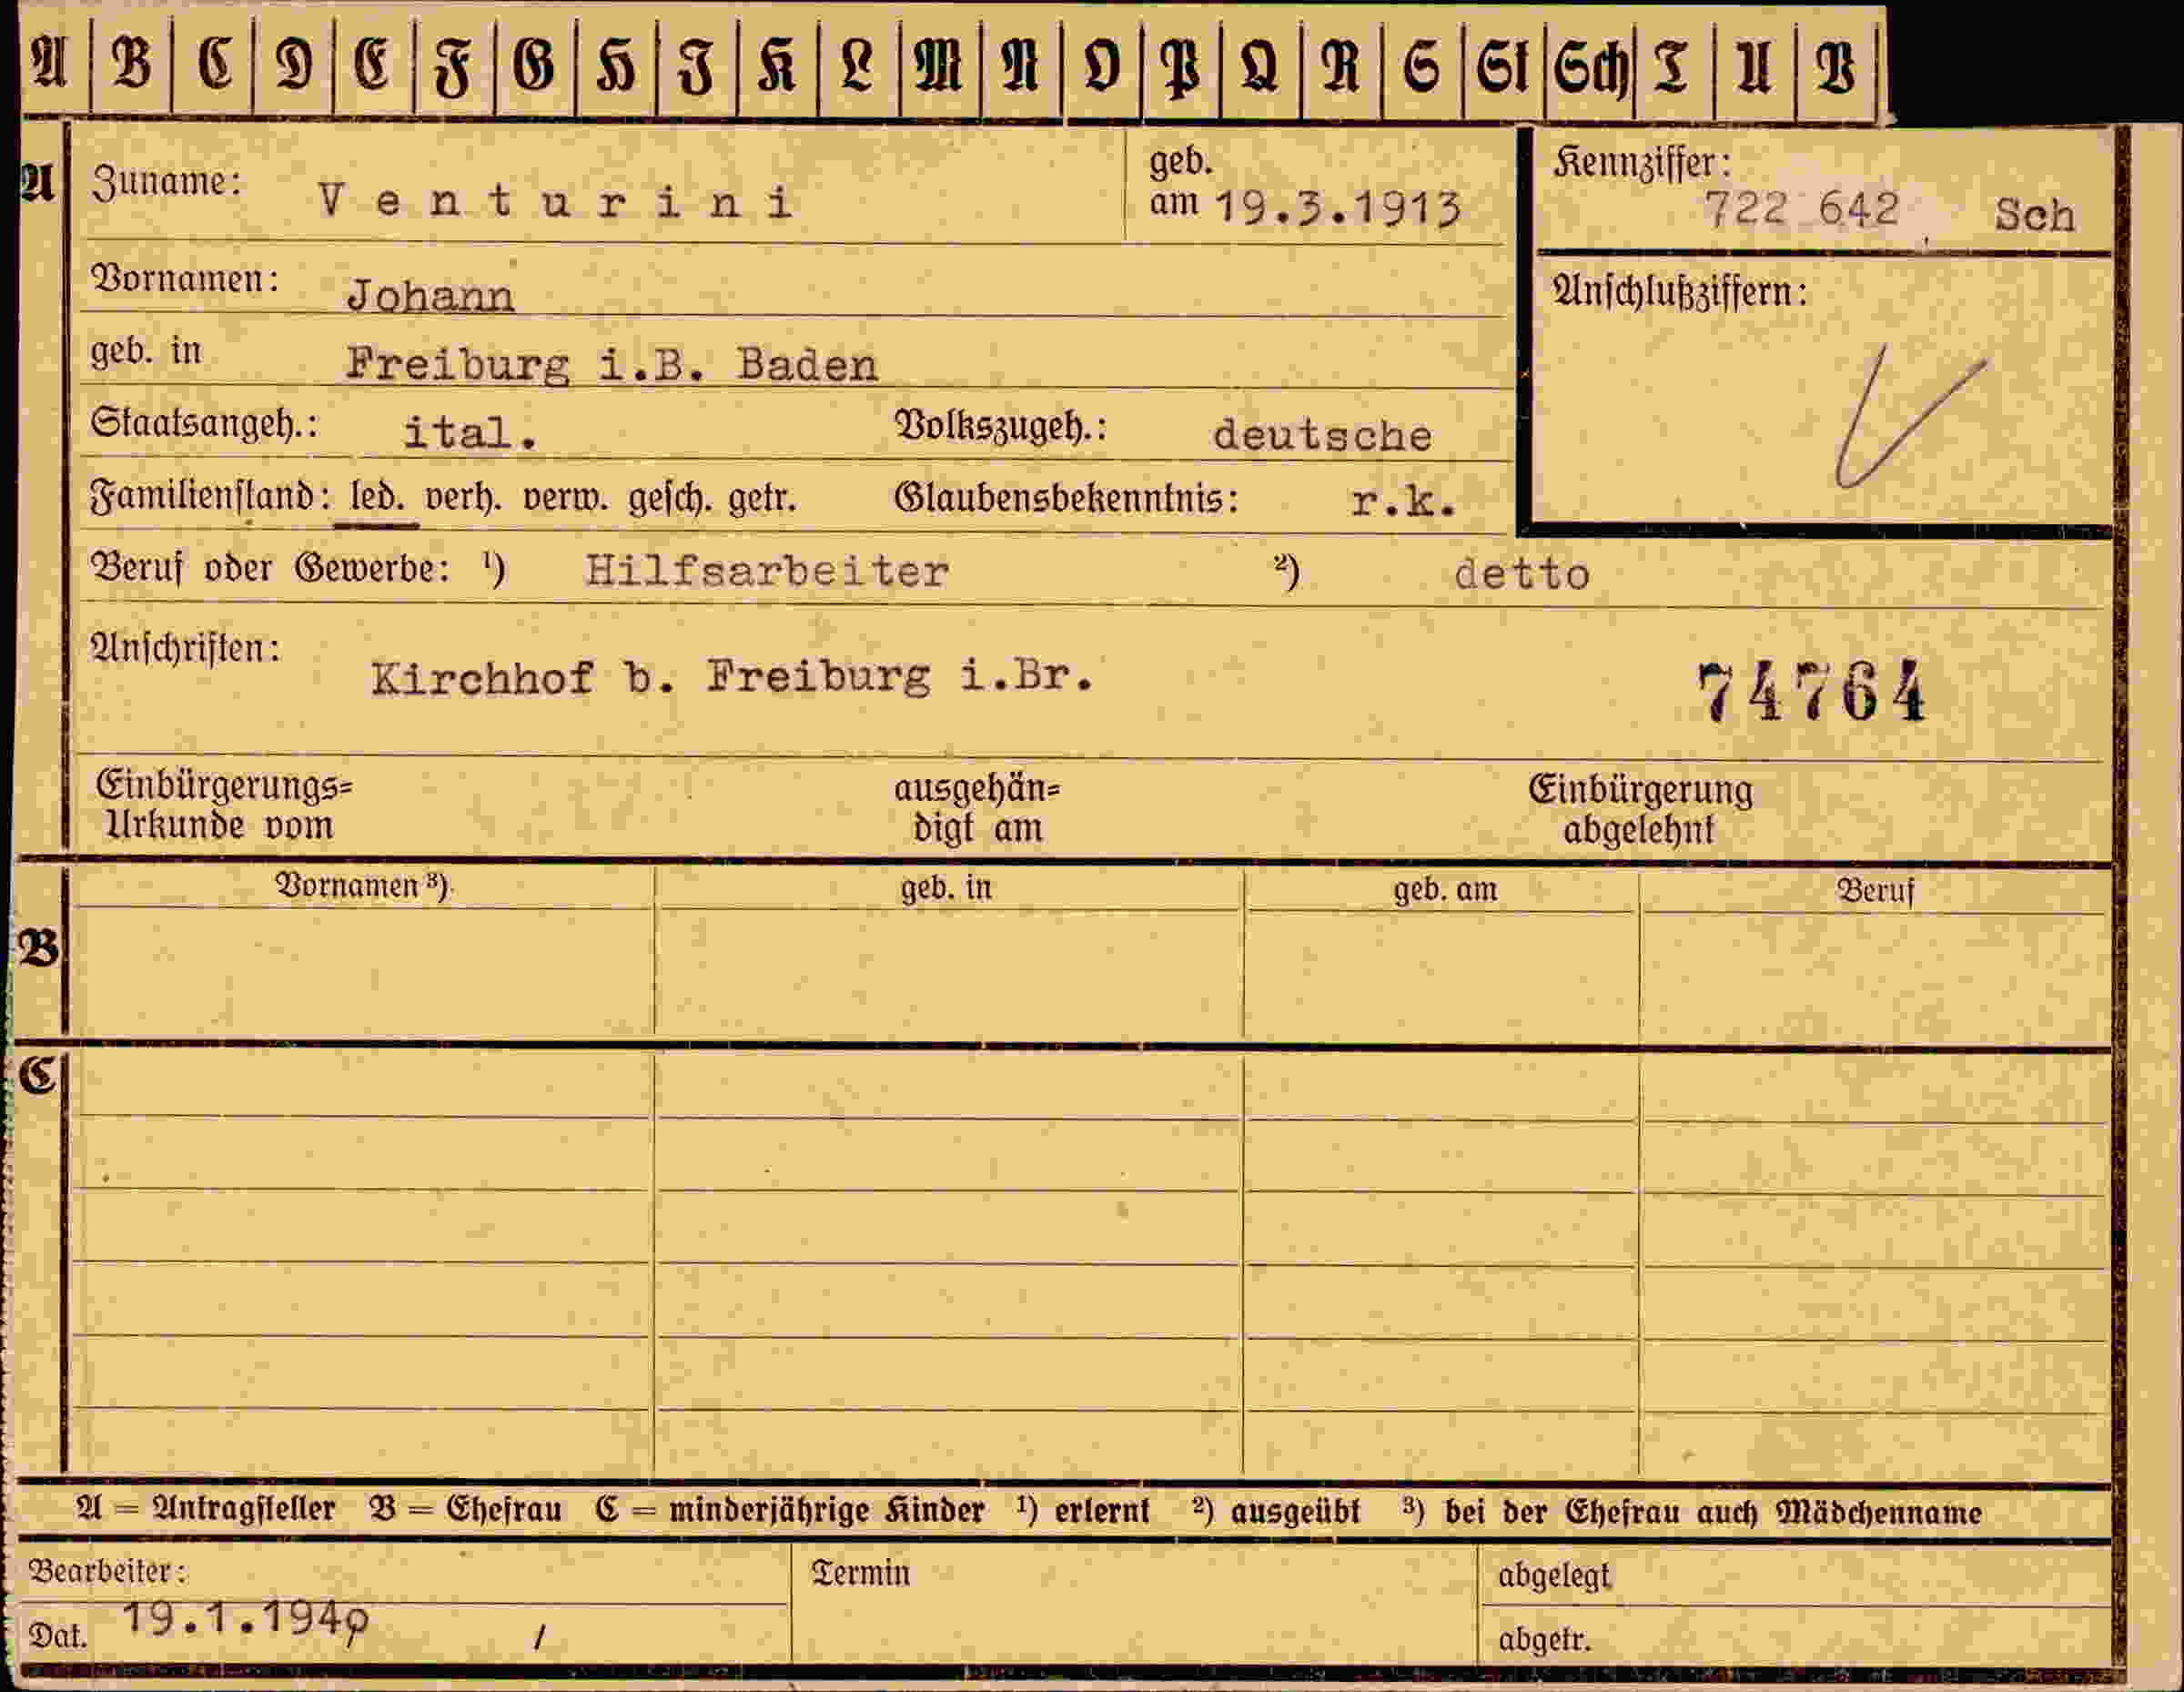 A B C D E F G H I K L M N O P Q R S St Sch T U V
A Zuname: Venturini geb. am 19.3.1913 Kennziffer: 722 642 Sch
Vornamen: Johann Anschlußziffern:
geb. in Freiburg i.B. Baden
Staatsangeh.: ital. Volkszugeh.: deutsche
Familienstand: led. verh. verw. gesch. getr. Glaubensbekenntnis: r.k.
Beruf oder Gewerbe: ¹) Hilfsarbeiter ²) detto
Anschriften: Kirchhof b. Freiburg i.Br. 74764
Einbürgerungs= ausgehän= Einbürgerung
Urkunde vom digt am abgelehnt
Vornamen ³) geb. in geb. am Beruf
B
C
A = Antragsteller B = Ehefrau C = minderjährige Kinder ¹) erlernt ²) ausgeübt ³) bei der Ehefrau auch Mädchenname
Bearbeiter: Termin abgelegt
Dat. 19.1.1940 / abgetr.